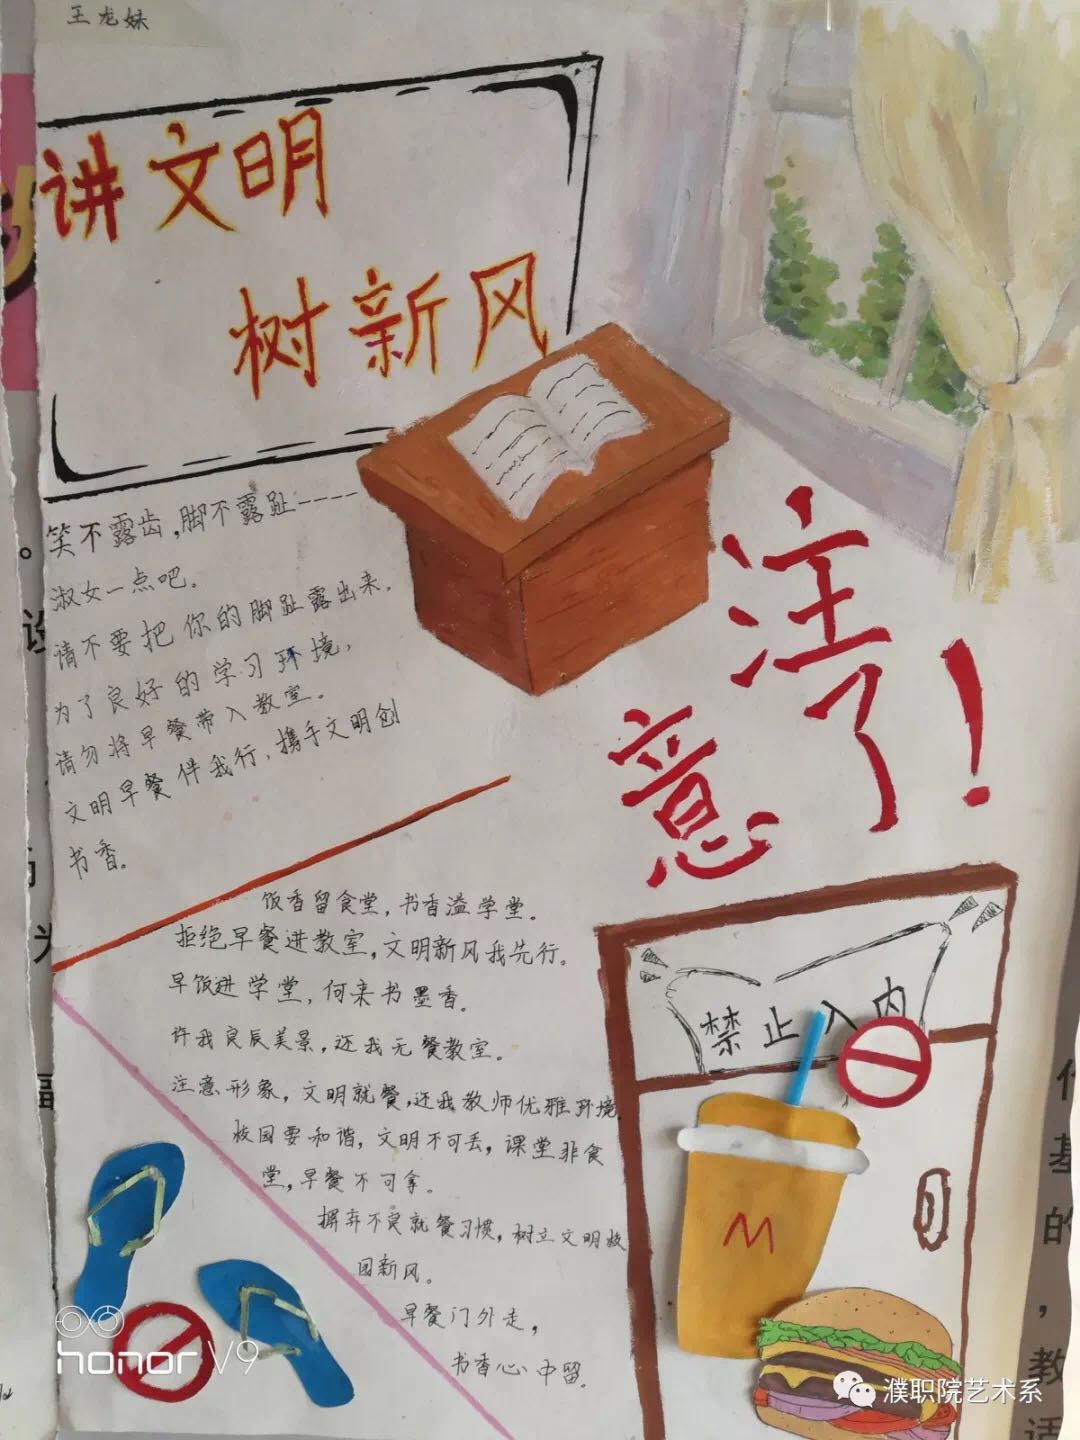 王龙妹
讲文明
树新风
笑不露齿，脚不露趾----
淑女一点吧。
请不要把你的脚趾露出来。
为了良好的学习环境，
请勿将早餐带入教室。
文明早餐伴我行，携手文明创
书香。
注
意
了！
饭香留食堂，书香溢学堂。
拒绝早餐进教室，文明新风我先行。
早饭进学堂，何来书墨香。
许我良辰美景，还我无餐教室。
注意形象，文明就餐，还我教师优雅环境。
校园要和谐，文明不可丢，课堂非食
堂，早餐不可拿。
摒弃不良就餐习惯，树立文明校
园新风。
早餐门外走，
书香心中留。
禁止入内
M
honor V9
濮职院艺术系
基
的
，
教